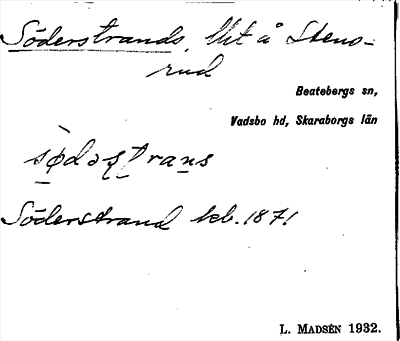 Söderstrands, lht å Steno-
rud
Beatebergs sn,
Vadsbo hd, Skaraborgs län
Söderstrand kb. 1871
L. MADSÉN 1932.